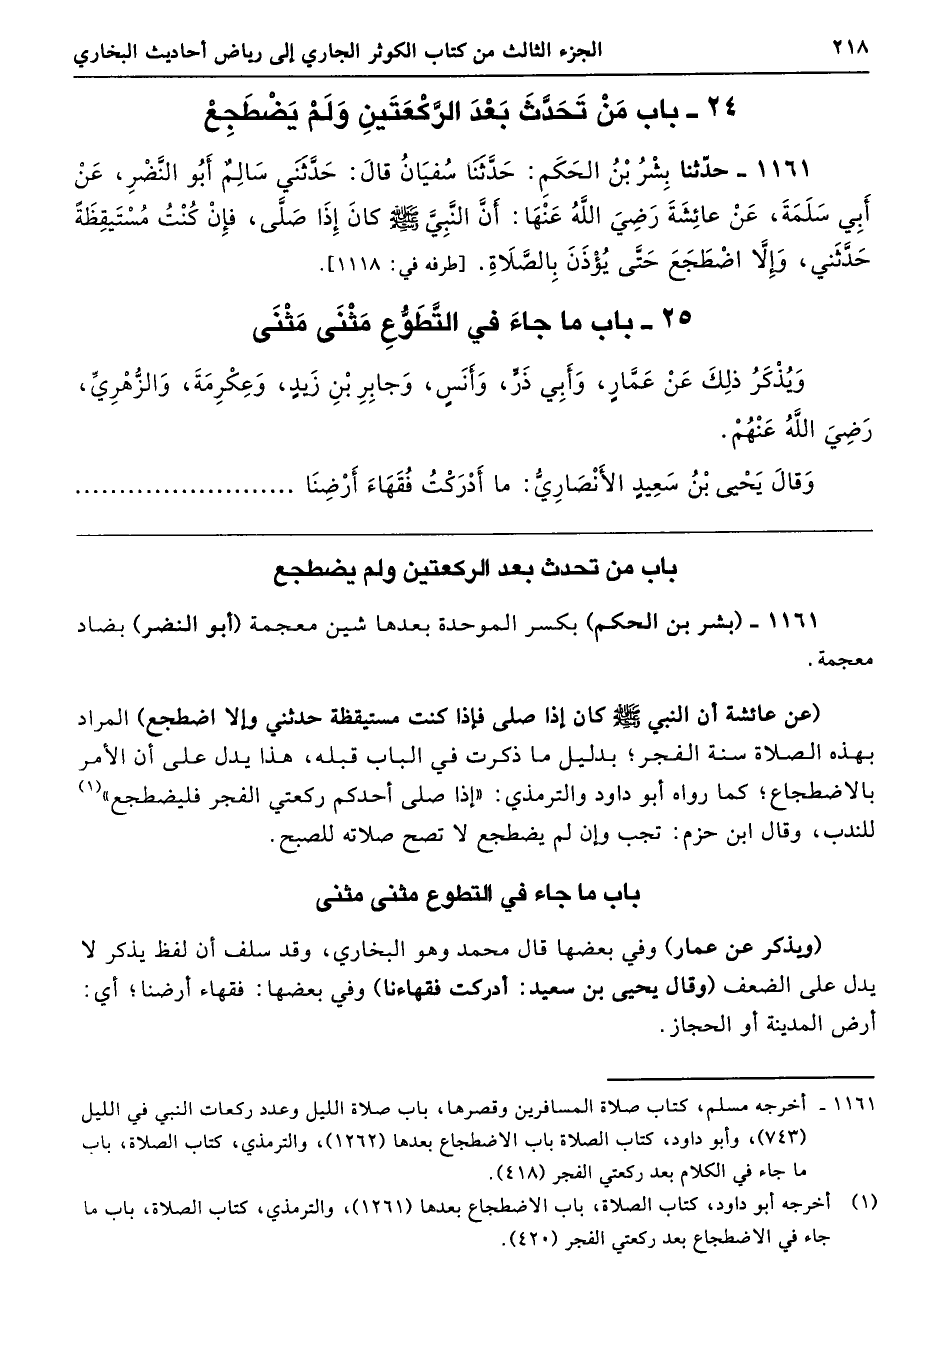 ٢١٨
الجزء الثالث من كتاب الكوثر الجاري إلى رياض أحاديث البخاري
٢٤ ـ باب مَنْ تَحَدَّثَ بَعْدَ الرَّكْعَتَينِ وَلَمْ يَضْطَجِعْ
١١٦١ ـ حدّثنا بِشْرُ بْنُ الحَكَمِ: حَدَّثَنَا سُفيَانُ قالَ: حَدَّثَنَي سَالِمٌ أَبُو النَّضْرِ، عَنْ
أَبِي سَلَمَةَ، عَنْ عائِشَةَ رَضِيَ اللَّهُ عَنْهَا: أَنَّ النَّبِيَّ ﷺ كانَ إِذَا صَلَّى، فَإِنْ كُنْتُ مُسْتَيقِظَةً
حَدَّثَني، وَإِلَّا اضْطَجَعَ حَتَّى يُؤْذَنَ بِالصَّلَاةِ. [طرفه في: ١١١٨].
٢٥ ـ باب ما جاءَ في التَّطَوُّعِ مَثْنَى مَثْنَى
وَيُذْكَرُ ذلِكَ عَنْ عَمَّارٍ، وَأَبِي ذَرٍّ، وَأَنَسٍ، وَجابِرِ بْنِ زَيدٍ، وَعِكْرِمَةَ، وَالزُّهْرِيِّ،
رَضِيَ اللَّهُ عَنْهُمْ.
وَقالَ يَحْيى بْنُ سَعِيدٍ الأَنْصَارِيُّ: ما أَدْرَكْتُ فُقَهَاءَ أَرْضِنَا .........................
باب من تحدث بعد الركعتين ولم يضطجع
١١٦١ ـ (بشر بن الحكم) بكسر الموحدة بعدها شين معجمة (أبو النضر) بضاد
معجمة.
(عن عائشة أن النبي ﷺ كان إذا صلى فإذا كنت مستيقظة حدثني وإلا اضطجع) المراد
بهذه الصلاة سنة الفجر؛ بدليل ما ذكرت في الباب قبله، هذا يدل على أن الأمر
بالاضطجاع؛ كما رواه أبو داود والترمذي: «إذا صلى أحدكم ركعتي الفجر فليضطجع»(١)
للندب، وقال ابن حزم: تجب وإن لم يضطجع لا تصح صلاته للصبح.
باب ما جاء في التطوع مثنى مثنى
(ويذكر عن عمار) وفي بعضها قال محمد وهو البخاري، وقد سلف أن لفظ يذكر لا
يدل على الضعف (وقال يحيى بن سعيد: أدركت فقهاءنا) وفي بعضها: فقهاء أرضنا؛ أي:
أرض المدينة أو الحجاز.
١١٦١ ـ أخرجه مسلم، كتاب صلاة المسافرين وقصرها، باب صلاة الليل وعدد ركعات النبي في الليل
(٧٤٣)، وأبو داود، كتاب الصلاة باب الاضطجاع بعدها (١٢٦٢)، والترمذي، كتاب الصلاة، باب
ما جاء في الكلام بعد ركعتي الفجر (٤١٨).
(١) أخرجه أبو داود، كتاب الصلاة، باب الاضطجاع بعدها (١٢٦١)، والترمذي، كتاب الصلاة، باب ما
جاء في الاضطجاع بعد ركعتي الفجر (٤٢٠).